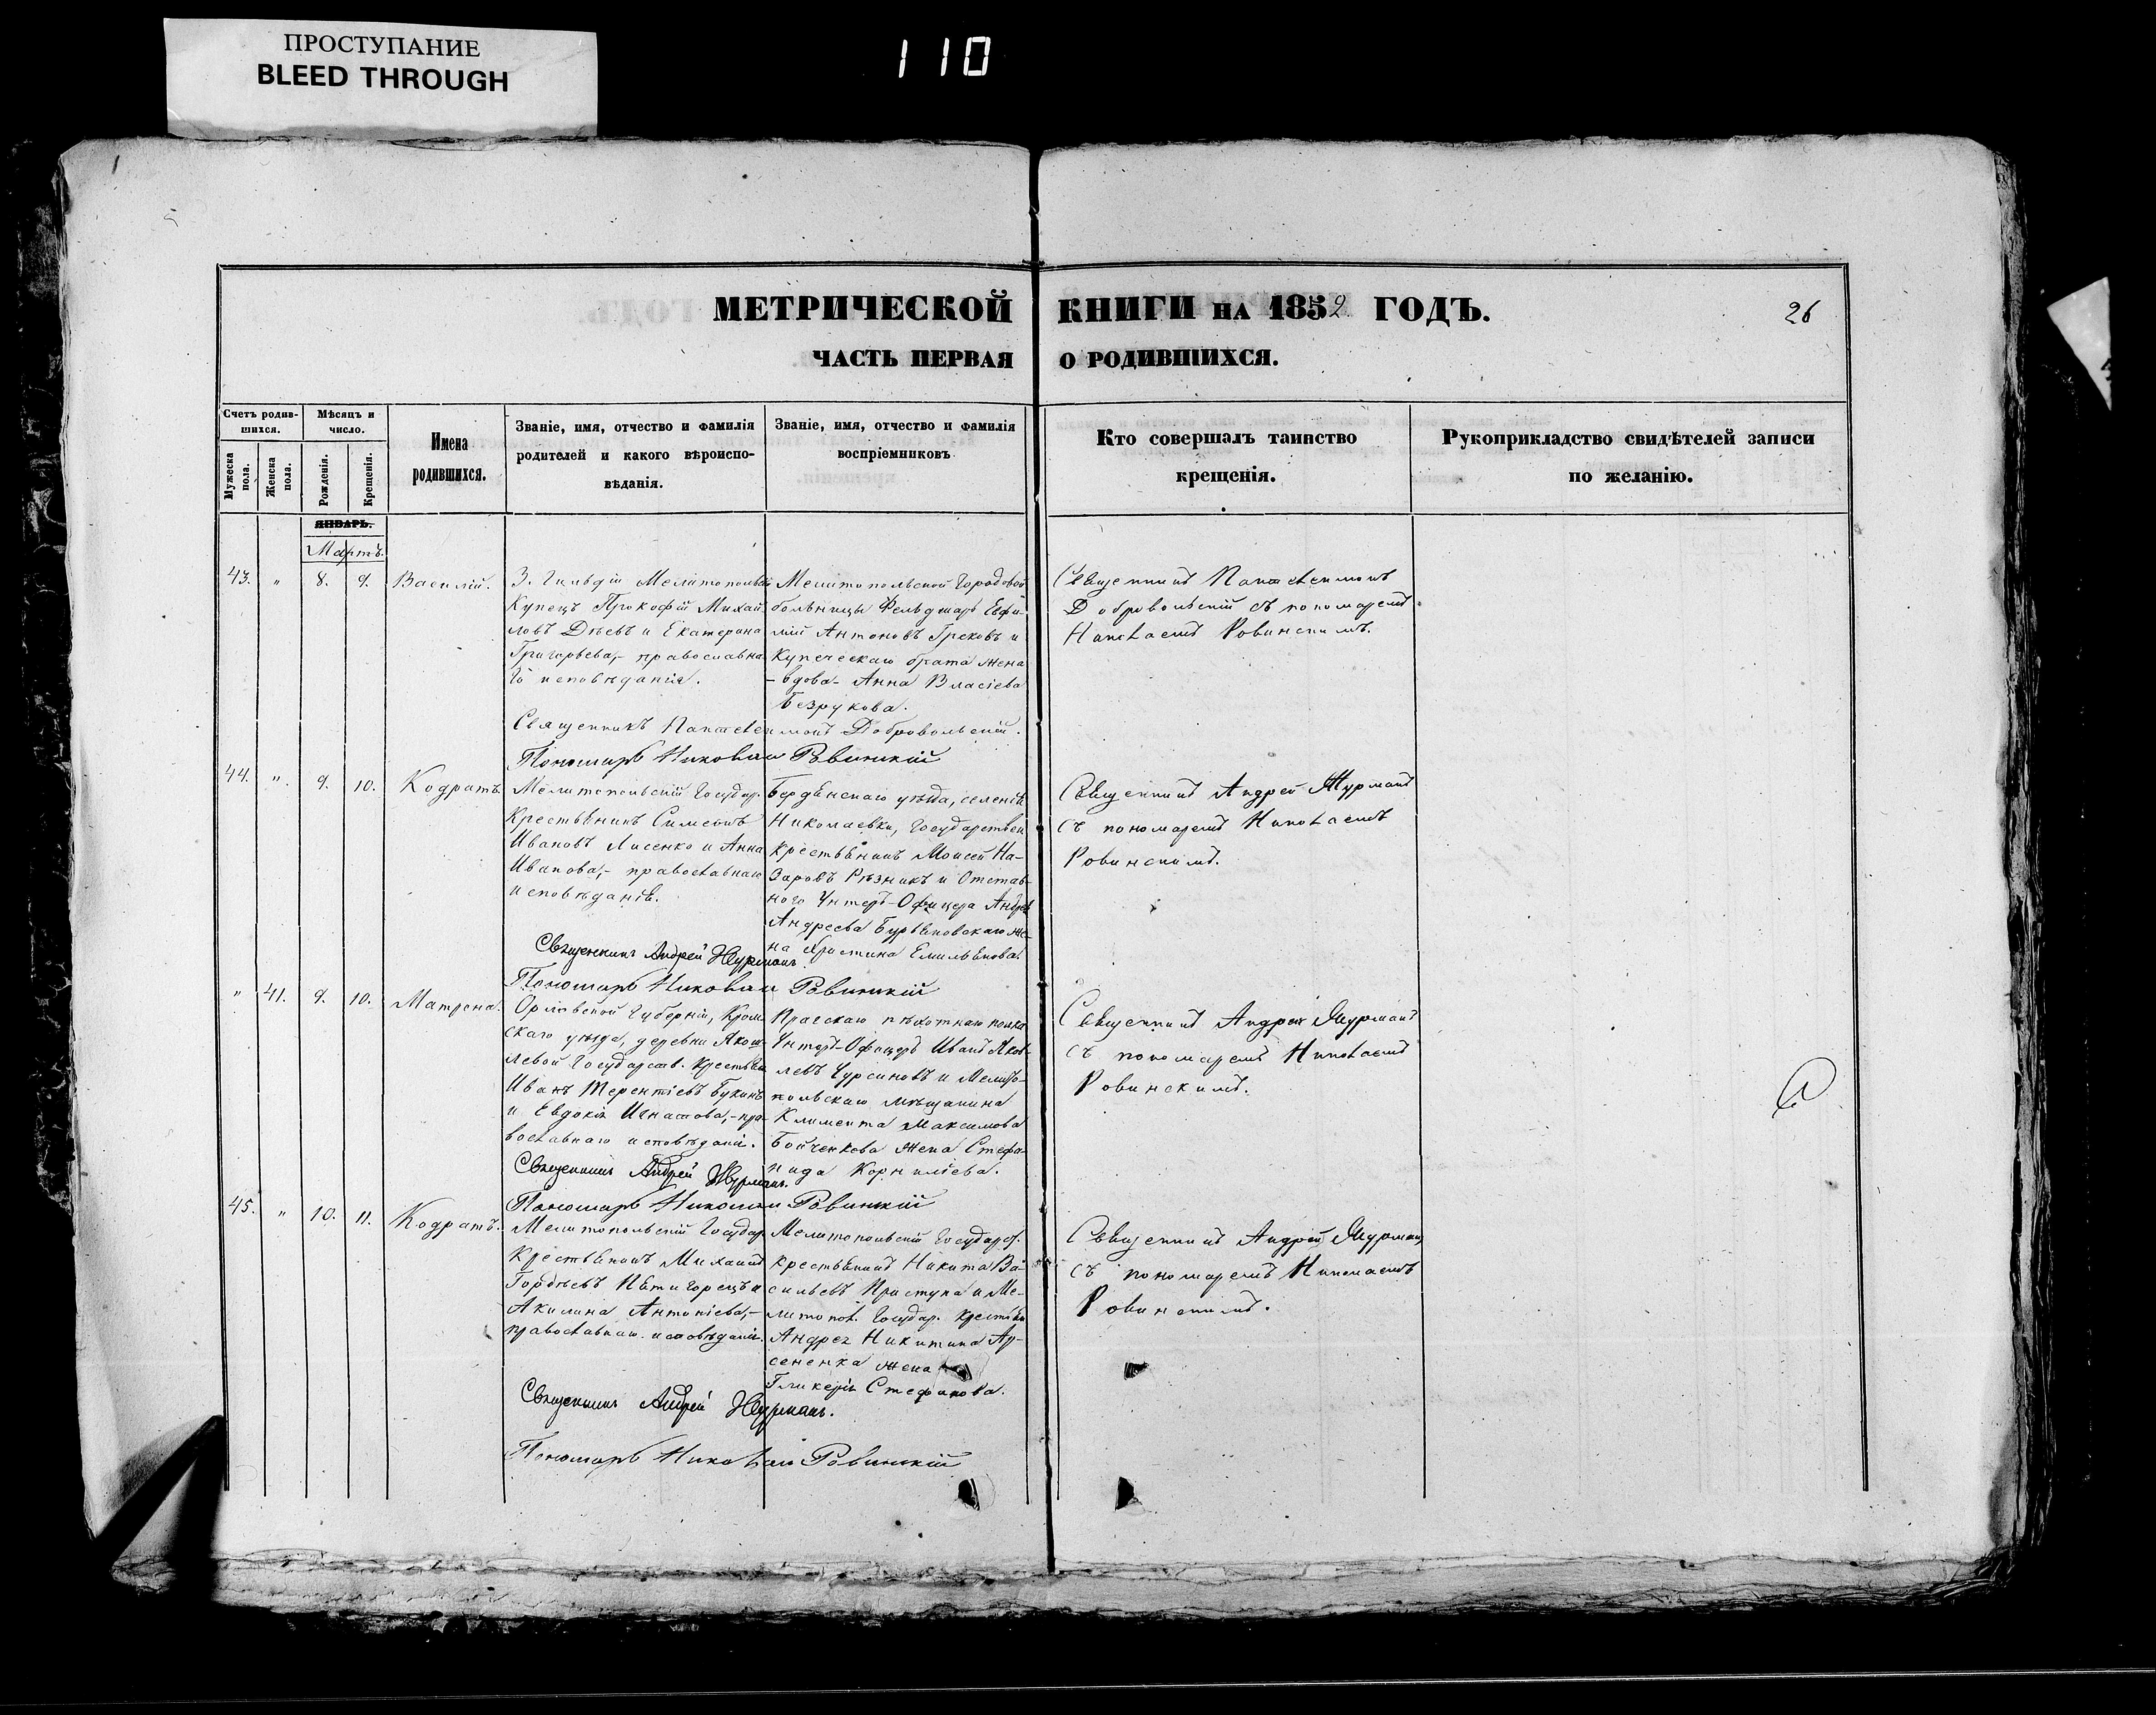 ПРОСТУПАНИЕ
BLEED THROUGH
110
МЕТРИЧЕСКОЙ КНИГИ НА 1852 ГОДЪ.
26
ЧАСТЬ ПЕРВАЯ О РОДИВШИХСЯ.
Счетъ родив-
шихся.
Мужеска пола.
Женска пола.
Мѣсяцъ и
число.
Рожденія.
Крещенія.
Имена
родившихся.
Званіе, имя, отчество и фамилія
родителей и какого вѣроиспо-
вѣданія.
Званіе, имя, отчество и фамилія
воспріемниковъ
Кто совершалъ таинство
крещенія.
Рукоприкладство свидѣтелей записи
по желанію.
ЯНВАРЬ.
Мартъ.
43. " 8. 9. Василій.
3. Гильдіи Мелитопольскій
Купецъ Прокофій Михай
ловъ Дѣевъ и Екатерина
Григорьева,- православна
го исповѣданія.
Мелитопольской Городовой
больницы Фельдшаръ Евфи-
мій Антоновъ Грековъ и
Купеческаго брата жена
- вдова - Анна Власіева
Безрукова.
Священникъ Пантелеимонъ
Добровольскій съ пономаремъ
Николаемъ Ровинскимъ.
Священникъ Пантелеимонъ Добровольскій.
Пономарь Николай Ровинскій
44. " 9. 10. Кодратъ
Мелитопольскій Государ.
Крестьянинъ Симеонъ
Ивановъ Лисенко и Анна
Иванова,- православнаго
исповѣданія.
Бердянскаго уѣзда, селенія
Николаевки, Государствен
крестьянинъ Моисей На-
заровъ Рѣзникъ и Отстав-
ного Унтеръ-Офицера Андрея
Андреева жe-
на Христина Емильянова.
Священникъ Андрей Журманъ
съ пономаремъ Николаемъ
Ровинскимъ.
Священникъ Андрей Журманъ.
Пономарь Николай Ровинскій
" 41. 9. 10. Матрона.
Орловской Губерніи, Кром-
скаго уѣзда, деревни Яков-
левой Государств. крестьян
Иванъ Терентіевъ Букинъ
и Евдокія Игнатова,- пра-
вославнаго исповѣдані.
Пражскаго пѣхотнаго полка
Унтеръ-Офицеръ Иванъ Яков-
левъ Чурсиновъ и Мелито-
польскаго мѣщанина
Климента Максимова
Бойченкова жена Стефа-
нида Корниліева.
Священникъ Андрей Журманъ
съ пономаремъ Николаемъ
Ровинскимъ.
Священникъ Андрей Журманъ.
Пономарь Николай Ровинскій
45. " 10. 11. Кодратъ.
Мелитопольскій Государ
Крестьянинъ Михаилъ
Гордѣевъ Пятигорецъ и
Акилина Антоніева,-
православнаго исповѣданія.
Мелитопольскій Государст.
крестьянинъ Никита Ва-
сильевъ Приступа и Ме-
литопол. Государ. крестьян
Андрея Никитина Ар-
сененка жена
Гликерія Стефанова.
Священникъ Андрей Журманъ
съ пономаремъ Николаемъ
Ровинскимъ.
Священникъ Андрей Журманъ.
Пономарь Николай Ровинскій